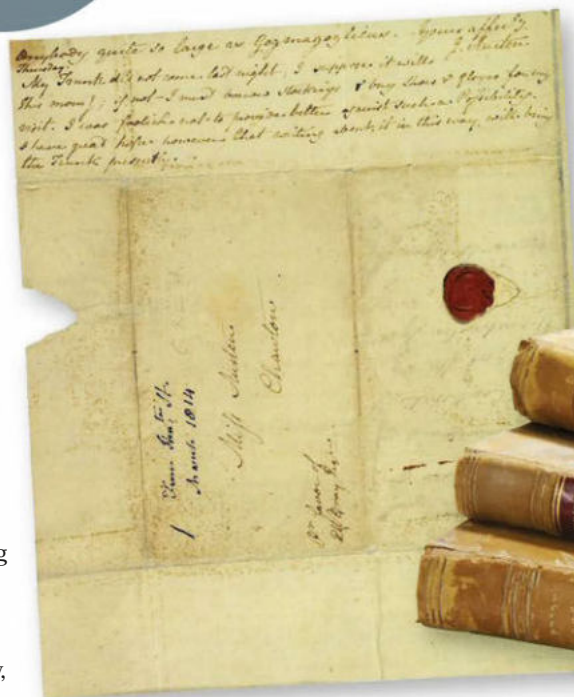 quite so large as Gogmagoglicus. – Yours affec:ly
Thursday J. Austen
My Trunk did not come last night, I suppose it will
this morn:g; if not I must borrow Stockings & buy Shoes & Gloves for my
visit. I was foolish not to provide better against such a Possibility. I
have great hope however that writing about it in this way, will bring
the Trunk presently.
From St.
March 1814
Miss Austen
Chawton
By favour of
Mr Gray
g
y,